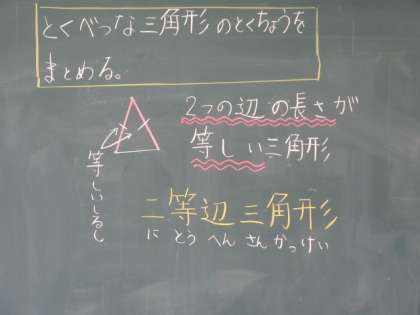 とくべつな三角形のとくちょうを
まとめる。
2つの辺の長さが
等しい三角形
等しいしるし
二等辺三角形
にとうへんさんかっけい